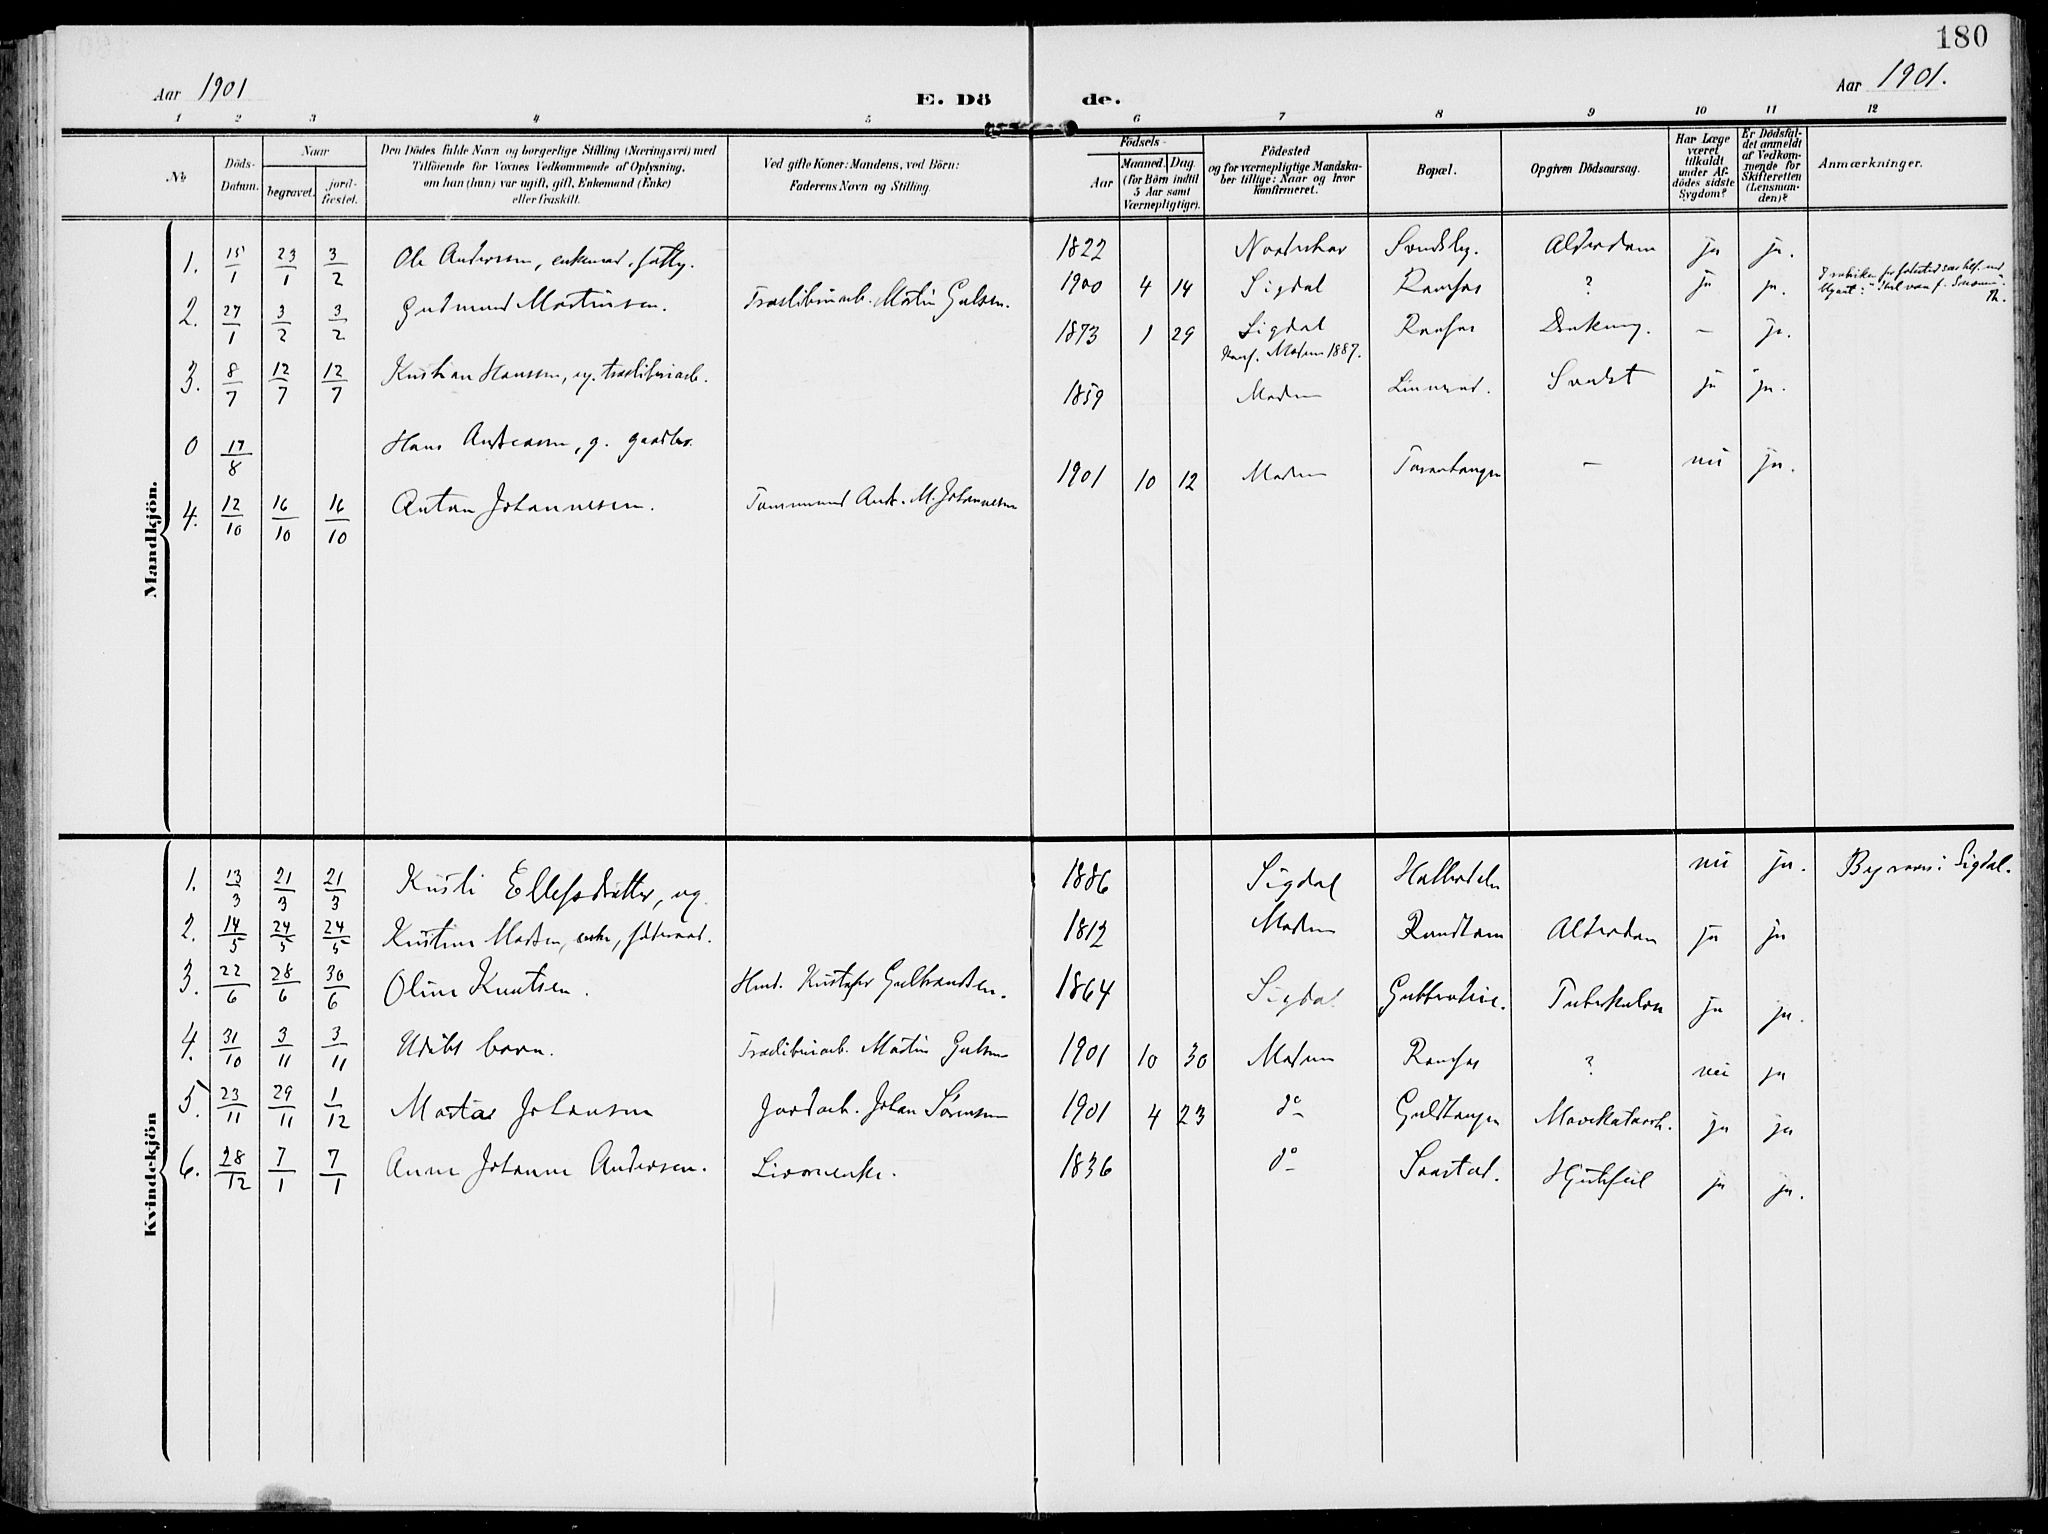 180
Aar 1901
E. Dö
de.
Aar 1901.
1 2 3 4 5 6 7 8 9 10 11 12
No
Döds-
Datum.
Naar
begravet.
jord-
fæstet.
Den Dödes fulde Navn og borgerlige Stilling (Næringsvei) med
Tilföiende for Voxnes Vedkommende af Oplysning,
om han (hun) var ugift, gift, Enkemand (Enke)
eller fraskilt.
Ved gifte Koner: Mandens, ved Börn:
Faderens Navn og Stilling.
Födsels-
Aar
Maaned. Dag.
(for Börn indtil
5 Aar samt
Værnepligtige).
Födested
og for værnepligtige Mandska-
ber tillige: Naar og hvor
konfirmeret.
Bopæl.
Opgiven Dödsaarsag.
Har Læge
været
tilkaldt
under Af-
dödes sidste
Sygdom?
Er Dödsfal-
det anmeldt
af Vedkom-
mende for
Skifteretten
(Lensman-
den)?
Anmærkninger.
Mandkjön.
1. 15/1 23/1 3/2 Ole Anderssen, enkemand, 1822 ja ja.
2. 27/1 3/2 3/2 Gudmund Martinsen. Træsliberiarb. Martin Gulsen. 1900 4 14 Sigdal Ramfos ? ja ja.
3. 8/7 12/7 12/7 Kristian Hanssen, ug. træsliberiarb. 1873 1 29 Sigdal Ramfos Drukning. – ja.
Konf. Modum 1887.
0 17/8 Hans Andreassen, g. gaardbr. 1859 Modum ja ja.
4. 12/10 16/10 16/10 Anton Johannesen. Tømmermand Andr. M. Johannesen 1901 10 12 Modum – nei ja.
Kvindekjön
1. 13/3 21/3 21/3 Kristi Ellefsdatter, ug. 1886 Sigdal nei ja. Begraves i Sigdal.
2. 14/5 24/5 24/5 Kristine Madsen, enke, føderaad. 1812 Modum Alderdom ja ja
3. 22/6 28/6 30/6 Oline Knutsen. Kristofer Gulbrandsen. 1864 Sigdal Tuberkulose ja ja.
4. 31/10 3/11 3/11 Udøbt barn. Træsliberiarb. Martin Gulsen 1901 10 30 Modum Ramfos ? nei ja
5. 23/11 29/11 1/12 Johansen Jordarb. Johan Sørensen 1901 4 23 do Mavekatarrh. ja ja
6. 28/12 7/1 7/1 Anne Johanne Andersen. 1836 do Hjertefeil ja ja.